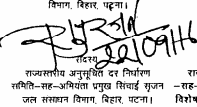 विभाग, बिहार, पटना।
22/09/16
सदस्य
राज्यस्तरीय अनुसूचित दर निर्धारण
समिति-सह-अभियंता प्रमुख सिंचाई सृजन -सह-
जल संसाधन विभाग, बिहार, पटना। विशेष